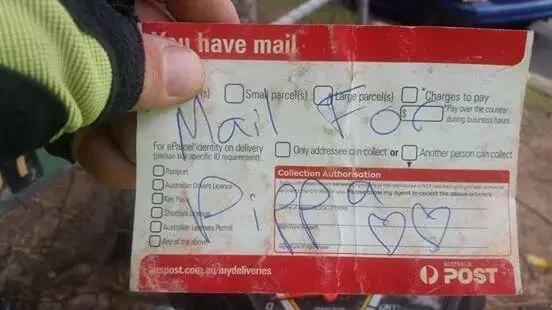 You have mail
Small parcel(s) Large parcel(s) *Charges to pay
$ *Pay over the counter
during business hours.
Mail For
For eParcel identity on delivery
(please tick specific ID requirement): Only addressee can collect or Another person can collect
Passport
Collection Authorisation
Australian Drivers Licence
Key Pass
Pippa
Australian Learners Permit
Any of the above
auspost.com.au/mydeliveries
AUSTRALIA
POST